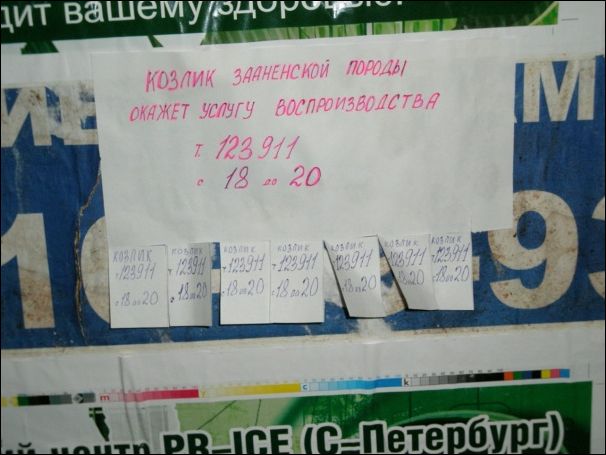 дит вашему здоровью
КОЗЛИК ЗААНЕНСКОЙ ПОРОДЫ
ОКАЖЕТ УСЛУГУ ВОСПРОИЗВОДСТВА
Т. 123911
С 18 ДО 20
КОЗЛИК
т123911
с 18 до 20
КОЗЛИК
т123911
с 18 до 20
КОЗЛИК
т123911
с 18 до 20
КОЗЛИК
т123911
с 18 до 20
КОЗЛИК
123911
с 18 до 20
КОЗЛИК
123911
18 до 20
КОЗЛИК
123911
с 18 до 20
m
y
c
k
ий центр PR-ICE (С-Петербург)